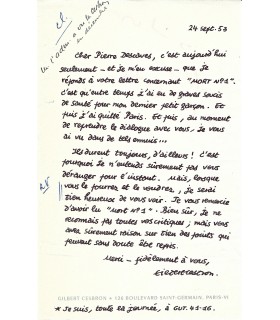 24 sept. 53
Cher Pierre Descaves, c'est aujourd'hui
seulement - et je m'en excuse - que je
réponds à votre lettre concernant "MORT N° 1".
C'est qu'entre temps j'ai eu de graves soucis
de santé pour mon dernier petit garçon. Et
puis j'ai quitté Paris. Et puis, au moment
de reprendre le dialogue avec vous, je vous
ai vu dans de tels ennuis...
Ils durent toujours, d'ailleurs ! C'est
pourquoi je n'entends sûrement pas vous
déranger pour l'instant. Mais, lorsque
vous le pourrez et le voudrez, je serai
bien heureux de vous voir. Je vous remercie
d'avoir lu "MORT N° 1". Bien sûr, je ne
reconnais pas toutes vos critiques ; mais vous
avez sûrement raison sur bien des points qui
peuvent sans doute être repris.
Merci - fidèlement à vous,
GILBERT CESBRON • 120 BOULEVARD SAINT-GERMAIN. PARIS-VI
* Je suis, toute la journée, à GUT. 43-16.